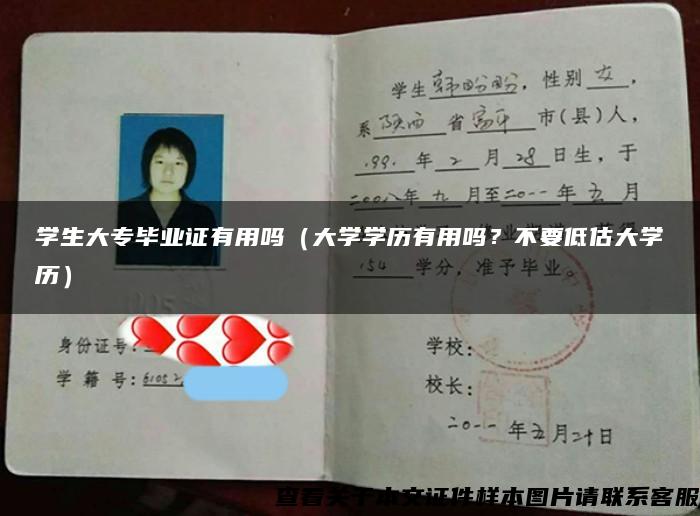 学生韩盼盼，性别女，
系陕西省富平市(县)人，
199.年2月28日生，于
二00八年九月至二0一一年五月
学生大专毕业证有用吗（大学学历有用吗？不要低估大学
学历）
154学分，准予毕业。
身份证号:
学籍号:61052
学校:
校长:
二0一一年五月二十日
查看关于本文证件样本图片请联系客服